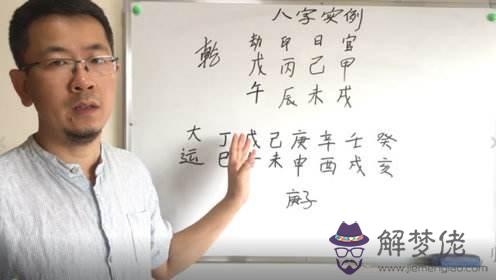 八字实例
乾 劫 印 日 官
戊 丙 己 甲
午 辰 未 戌
大 丁 戊 己 庚 辛 壬 癸
运 巳 未 申 酉 戌 亥
庚子
解梦佬
www.jiemenglao.com